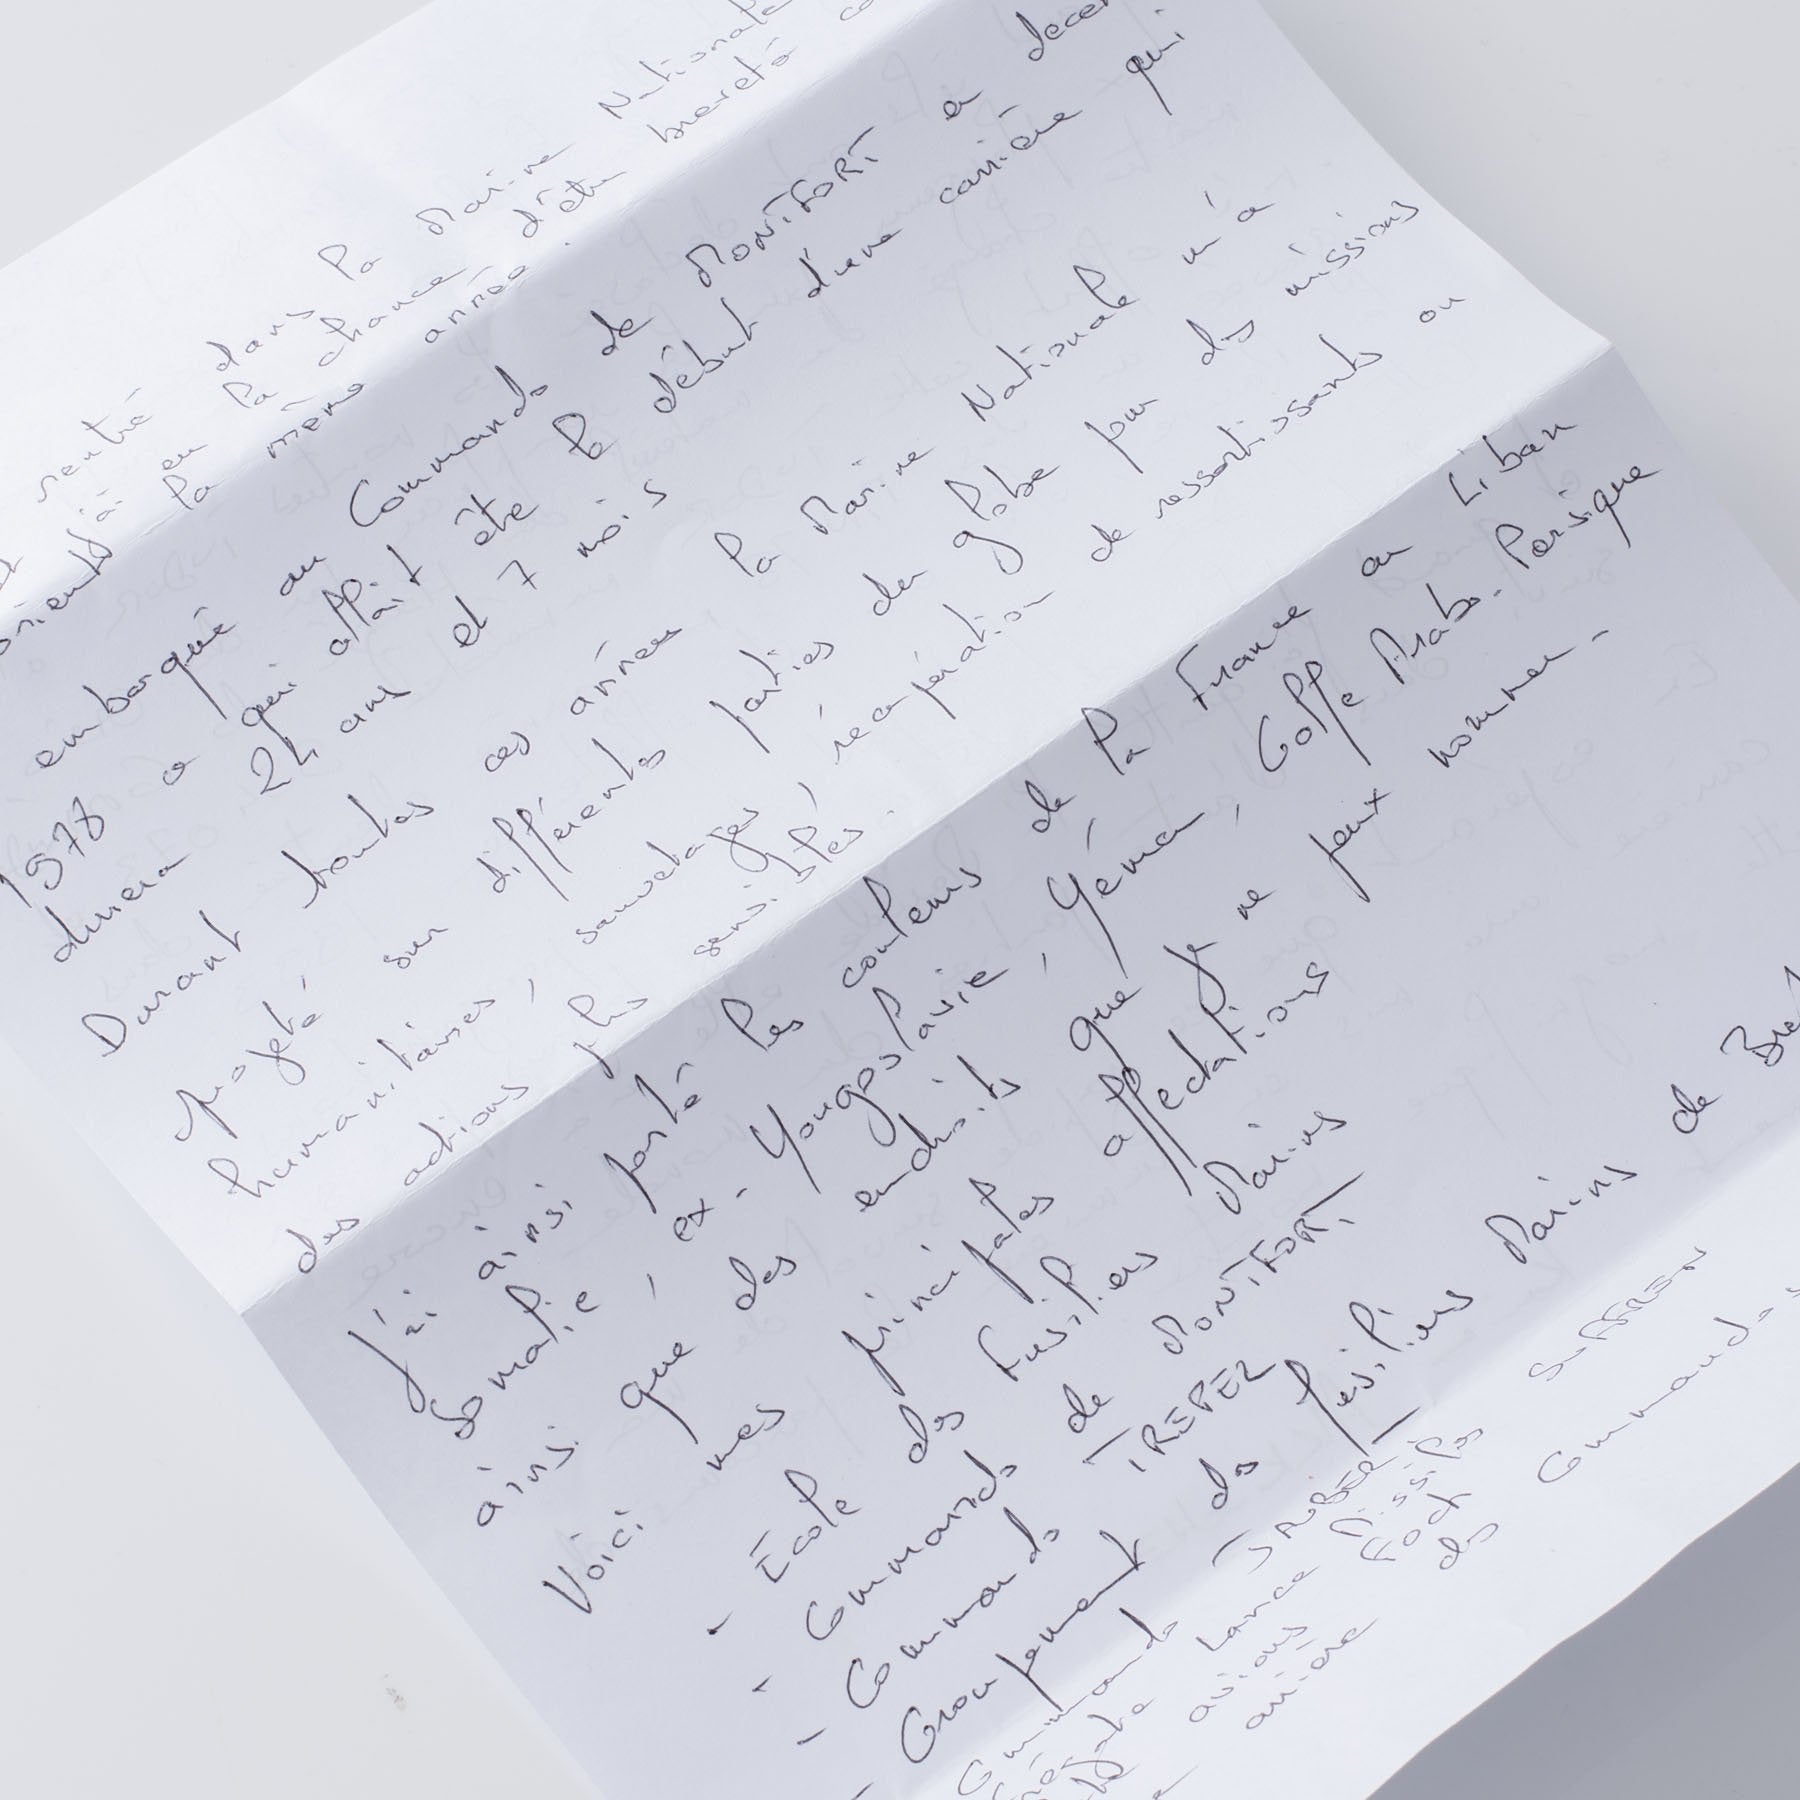 rentré dans la Marine Nationale
orienté j'ai eu la chance d'être breveté
la même année.
embarqué au Commando de MONTFORT en décem
1978 ce qui allait être le début d'une carrière qui
durera 24 ans et 7 mois
Durant toutes ces années la Marine Nationale m'a
projeté sur différentes parties du globe pour des missions
humanitaires, sauvetages, récupération de ressortissants ou
des actions plus sensibles.
J'ai ainsi porté les couleurs de la France au Liban
Somalie, ex-Yougoslavie, Yémen, Golfe Arabo-Persique
ainsi que des endroits que je ne peux nommer.
Voici mes principales affectations
- Ecole des Fusiliers Marins
- Commando de MONTFORT
- Commando TREPEL
- Groupement des fusiliers Marins de Brest
Commando JAUBERT
Frégate Lance Missiles SUFFREN
avions Foch
arrière des Commandos